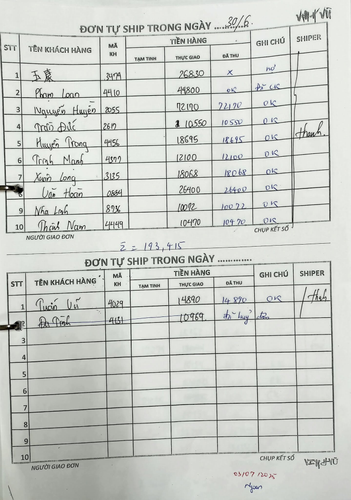 ĐƠN TỰ SHIP TRONG NGÀY 30/6.
STT TÊN KHÁCH HÀNG MÃ KH TIỀN HÀNG GHI CHÚ SHIPER
TẠM TÍNH THỰC GIAO ĐÃ THU
1 3479 26830 x nợ
2 Phạm Loan 4410 44800 OK
3 Nguyễn Huyền 2055 72170 72170 OK
4 Trần Đức 2617 10550 10550 OK
5 Huyền Trang 4456 18695 18695 OK thanh
6 Trịnh Mạnh 12100 12100 OK
7 Xuân Long 3135 18068 18068 OK
8 Văn Hoàn 0884 26400 26400 OK
9 Nhà Linh 10092 10092 OK
10 Thành Nam 4449 10470 10470 OK
NGƯỜI GIAO ĐƠN CHỤP KÉT SỔ
Σ = 193,415
ĐƠN TỰ SHIP TRONG NGÀY
STT TÊN KHÁCH HÀNG MÃ KH TIỀN HÀNG GHI CHÚ SHIPER
TẠM TÍNH THỰC GIAO ĐÃ THU
1 Tuấn Vũ 4029 14890 14890 OK
2 4151 10969 đã huỷ đơn
3
4
5
6
7
8
9
10
NGƯỜI GIAO ĐƠN CHỤP KÉT SỔ
03/07/2025
Ngan